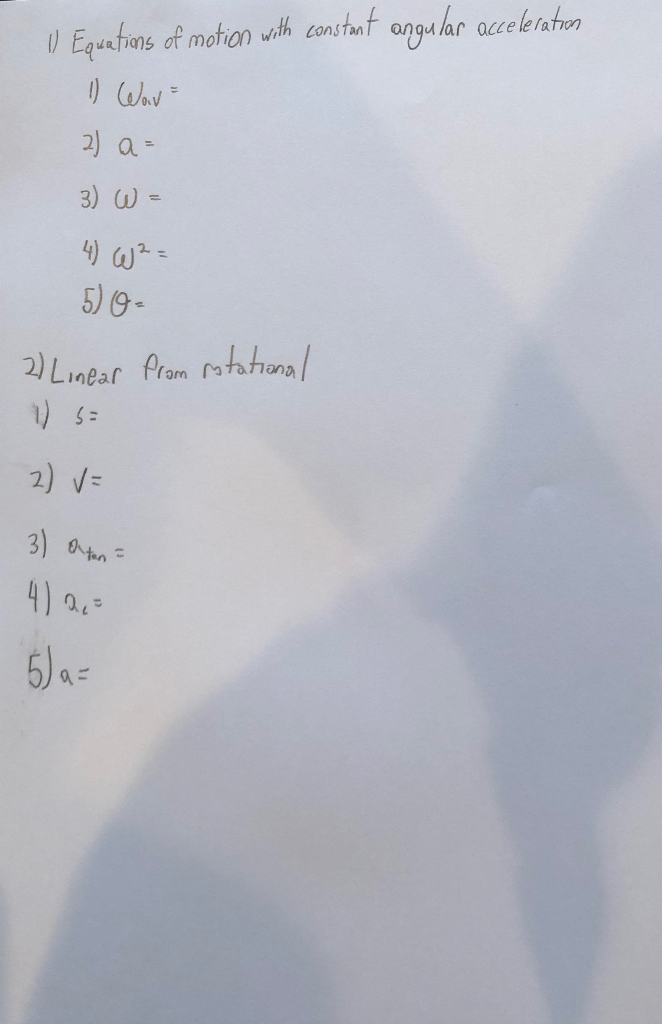 1) Equations of motion with constant angular acceleration
1) ωav =
2) a =
3) ω =
4) ω² =
5) θ =
2) Linear from rotational
1) s =
2) v =
3) atan =
4) ac =
5) a =